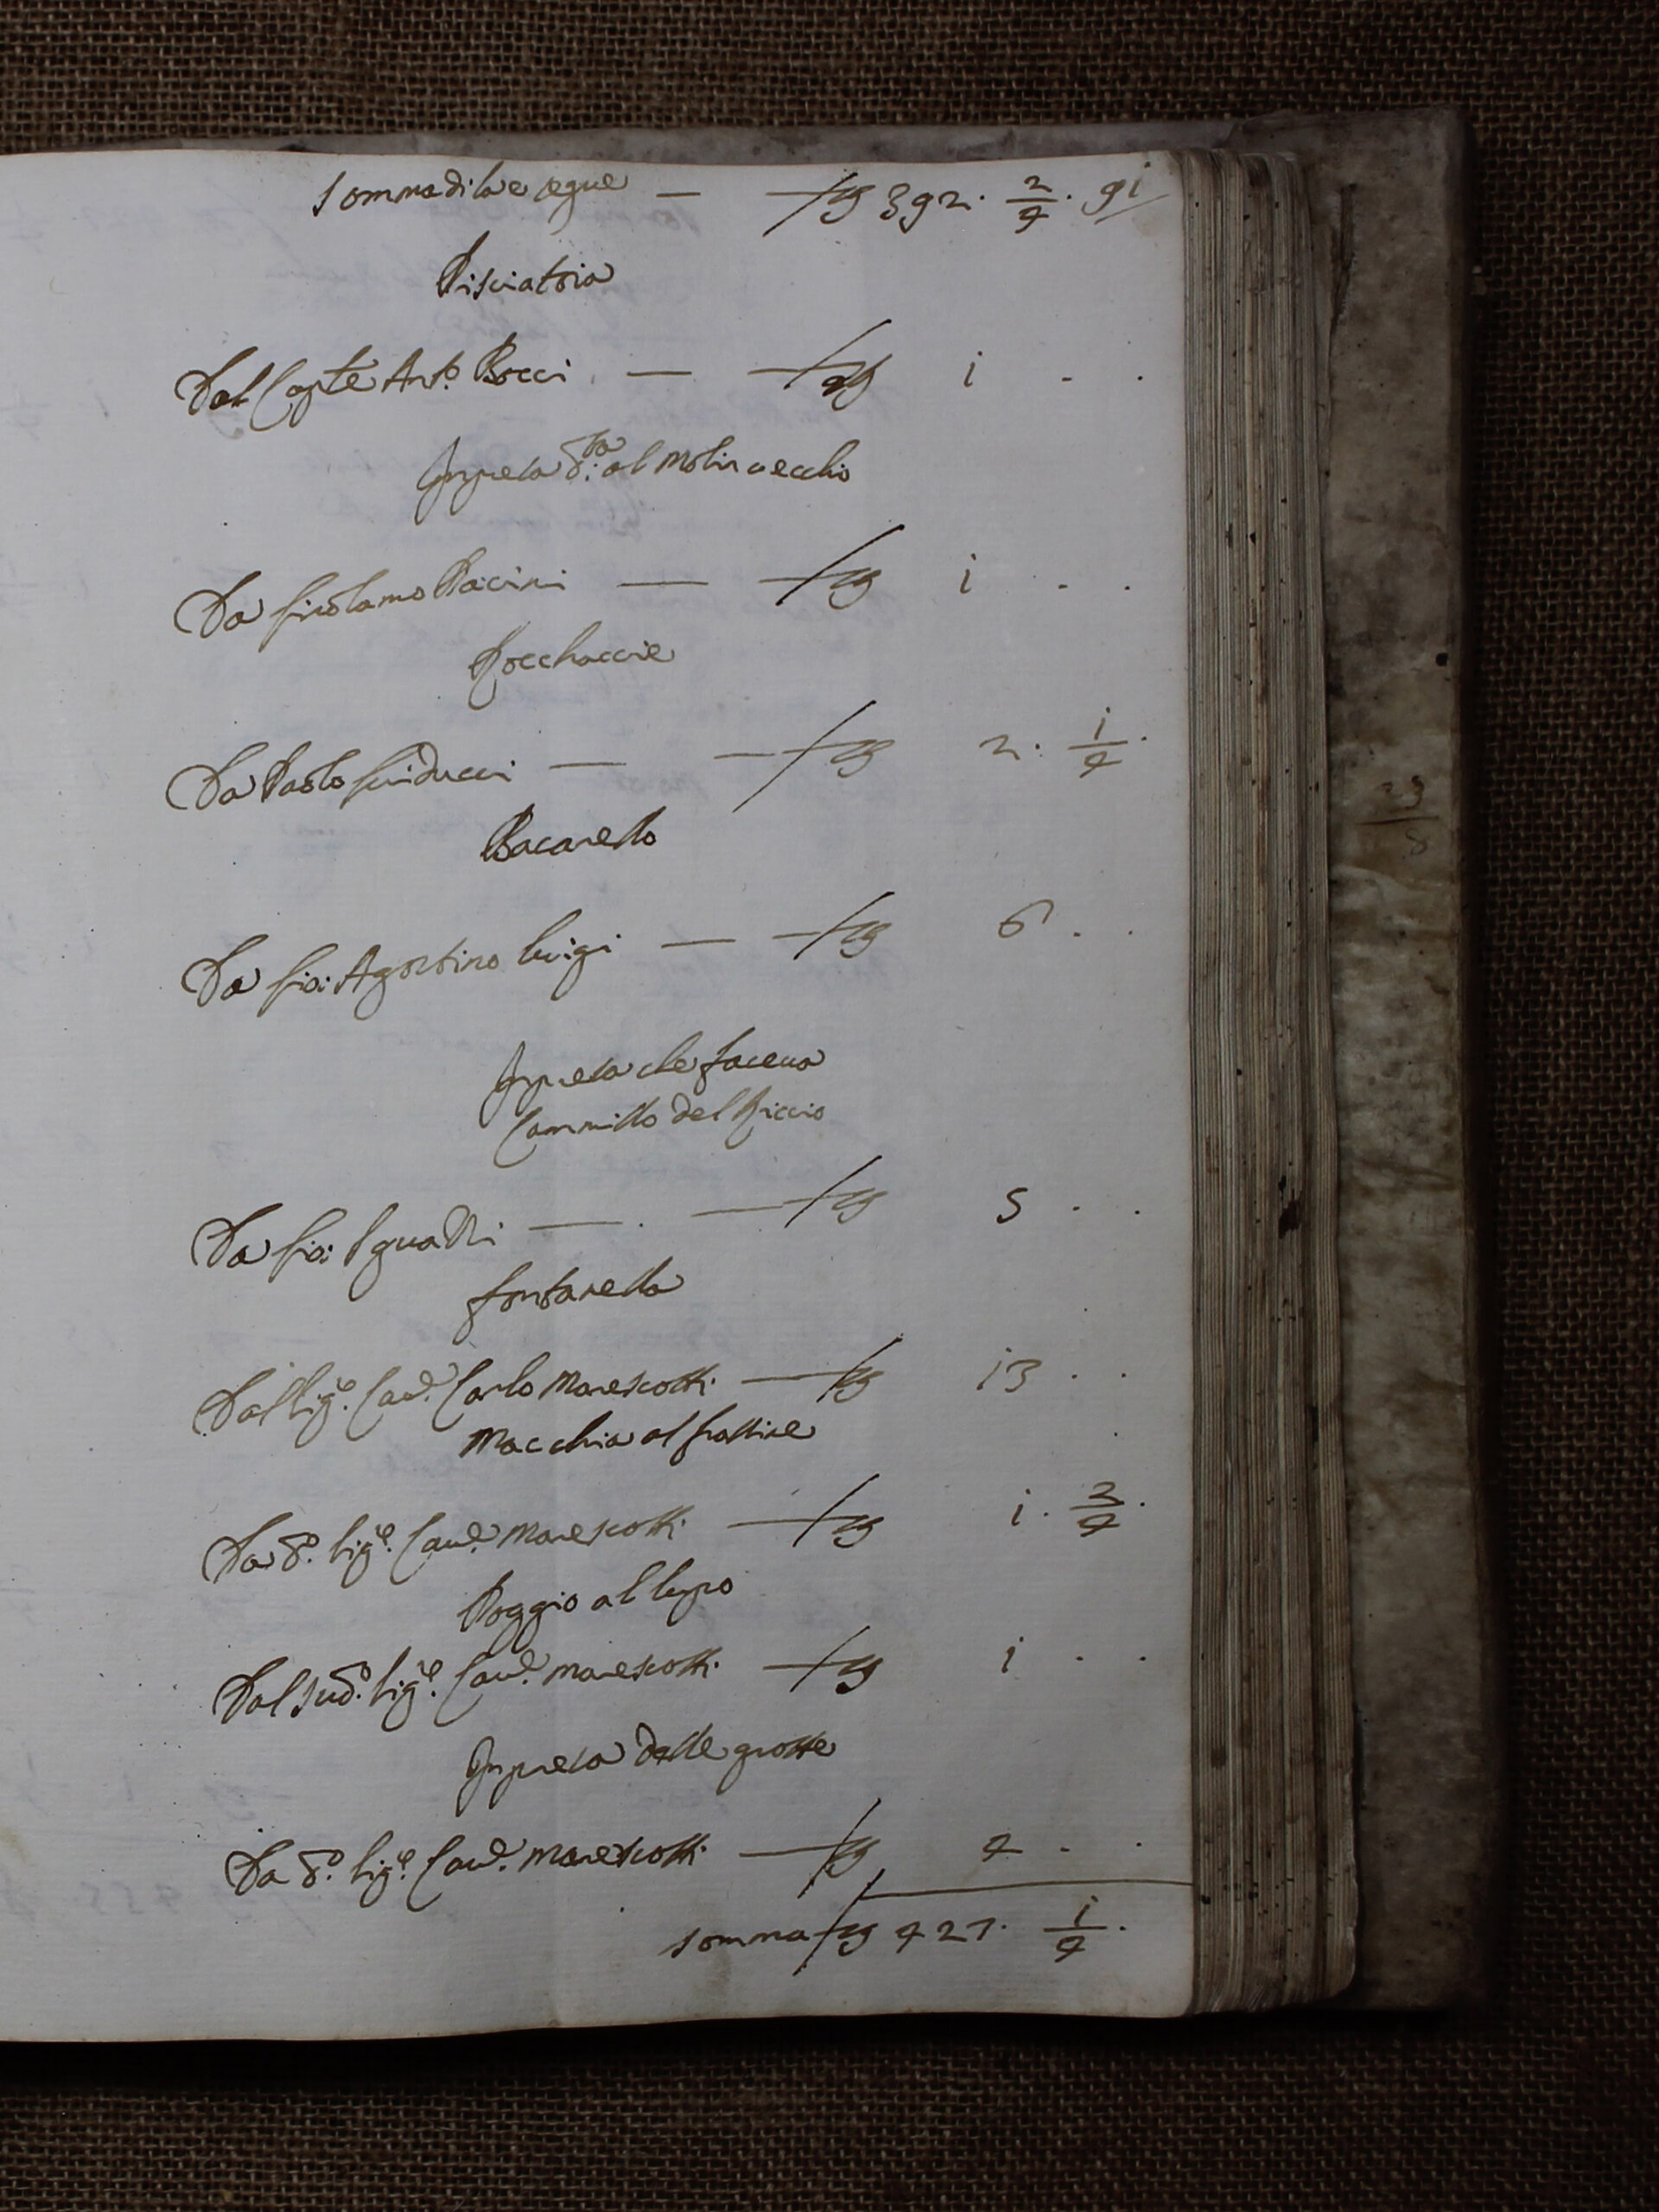 Somma di la e segue — — mg 392. 2/4. gi
Pisciatoia
Dal Capte Anto. Bocci — — mg i . .
Impresa d.ta al Molin vecchio
Da Girolamo Pacini — — mg i . .
Rocchaccie
Da Paolo Guiducci — — mg 2. i/4.
Bacarello
Da Gio: Agostino luigi — — mg 6 . .
Impresa che faceva
Cammillo del Riccio
Da Gio: Sguazzi — . — mg 5 . .
fontanella
Dal Sigre. Cave. Carlo Marescotti — mg i3 . .
Macchia al frassine
Da do. Sigre. Cave. Marescotti — mg i. 2/4.
Poggio al lupo
Dal sudo. Sigre. Cave. Marescotti — mg i . .
Impresa delle grotte
Da do. Sigre. Cave. Marescotti — mg 4 . .
somma mg 427. i/4.